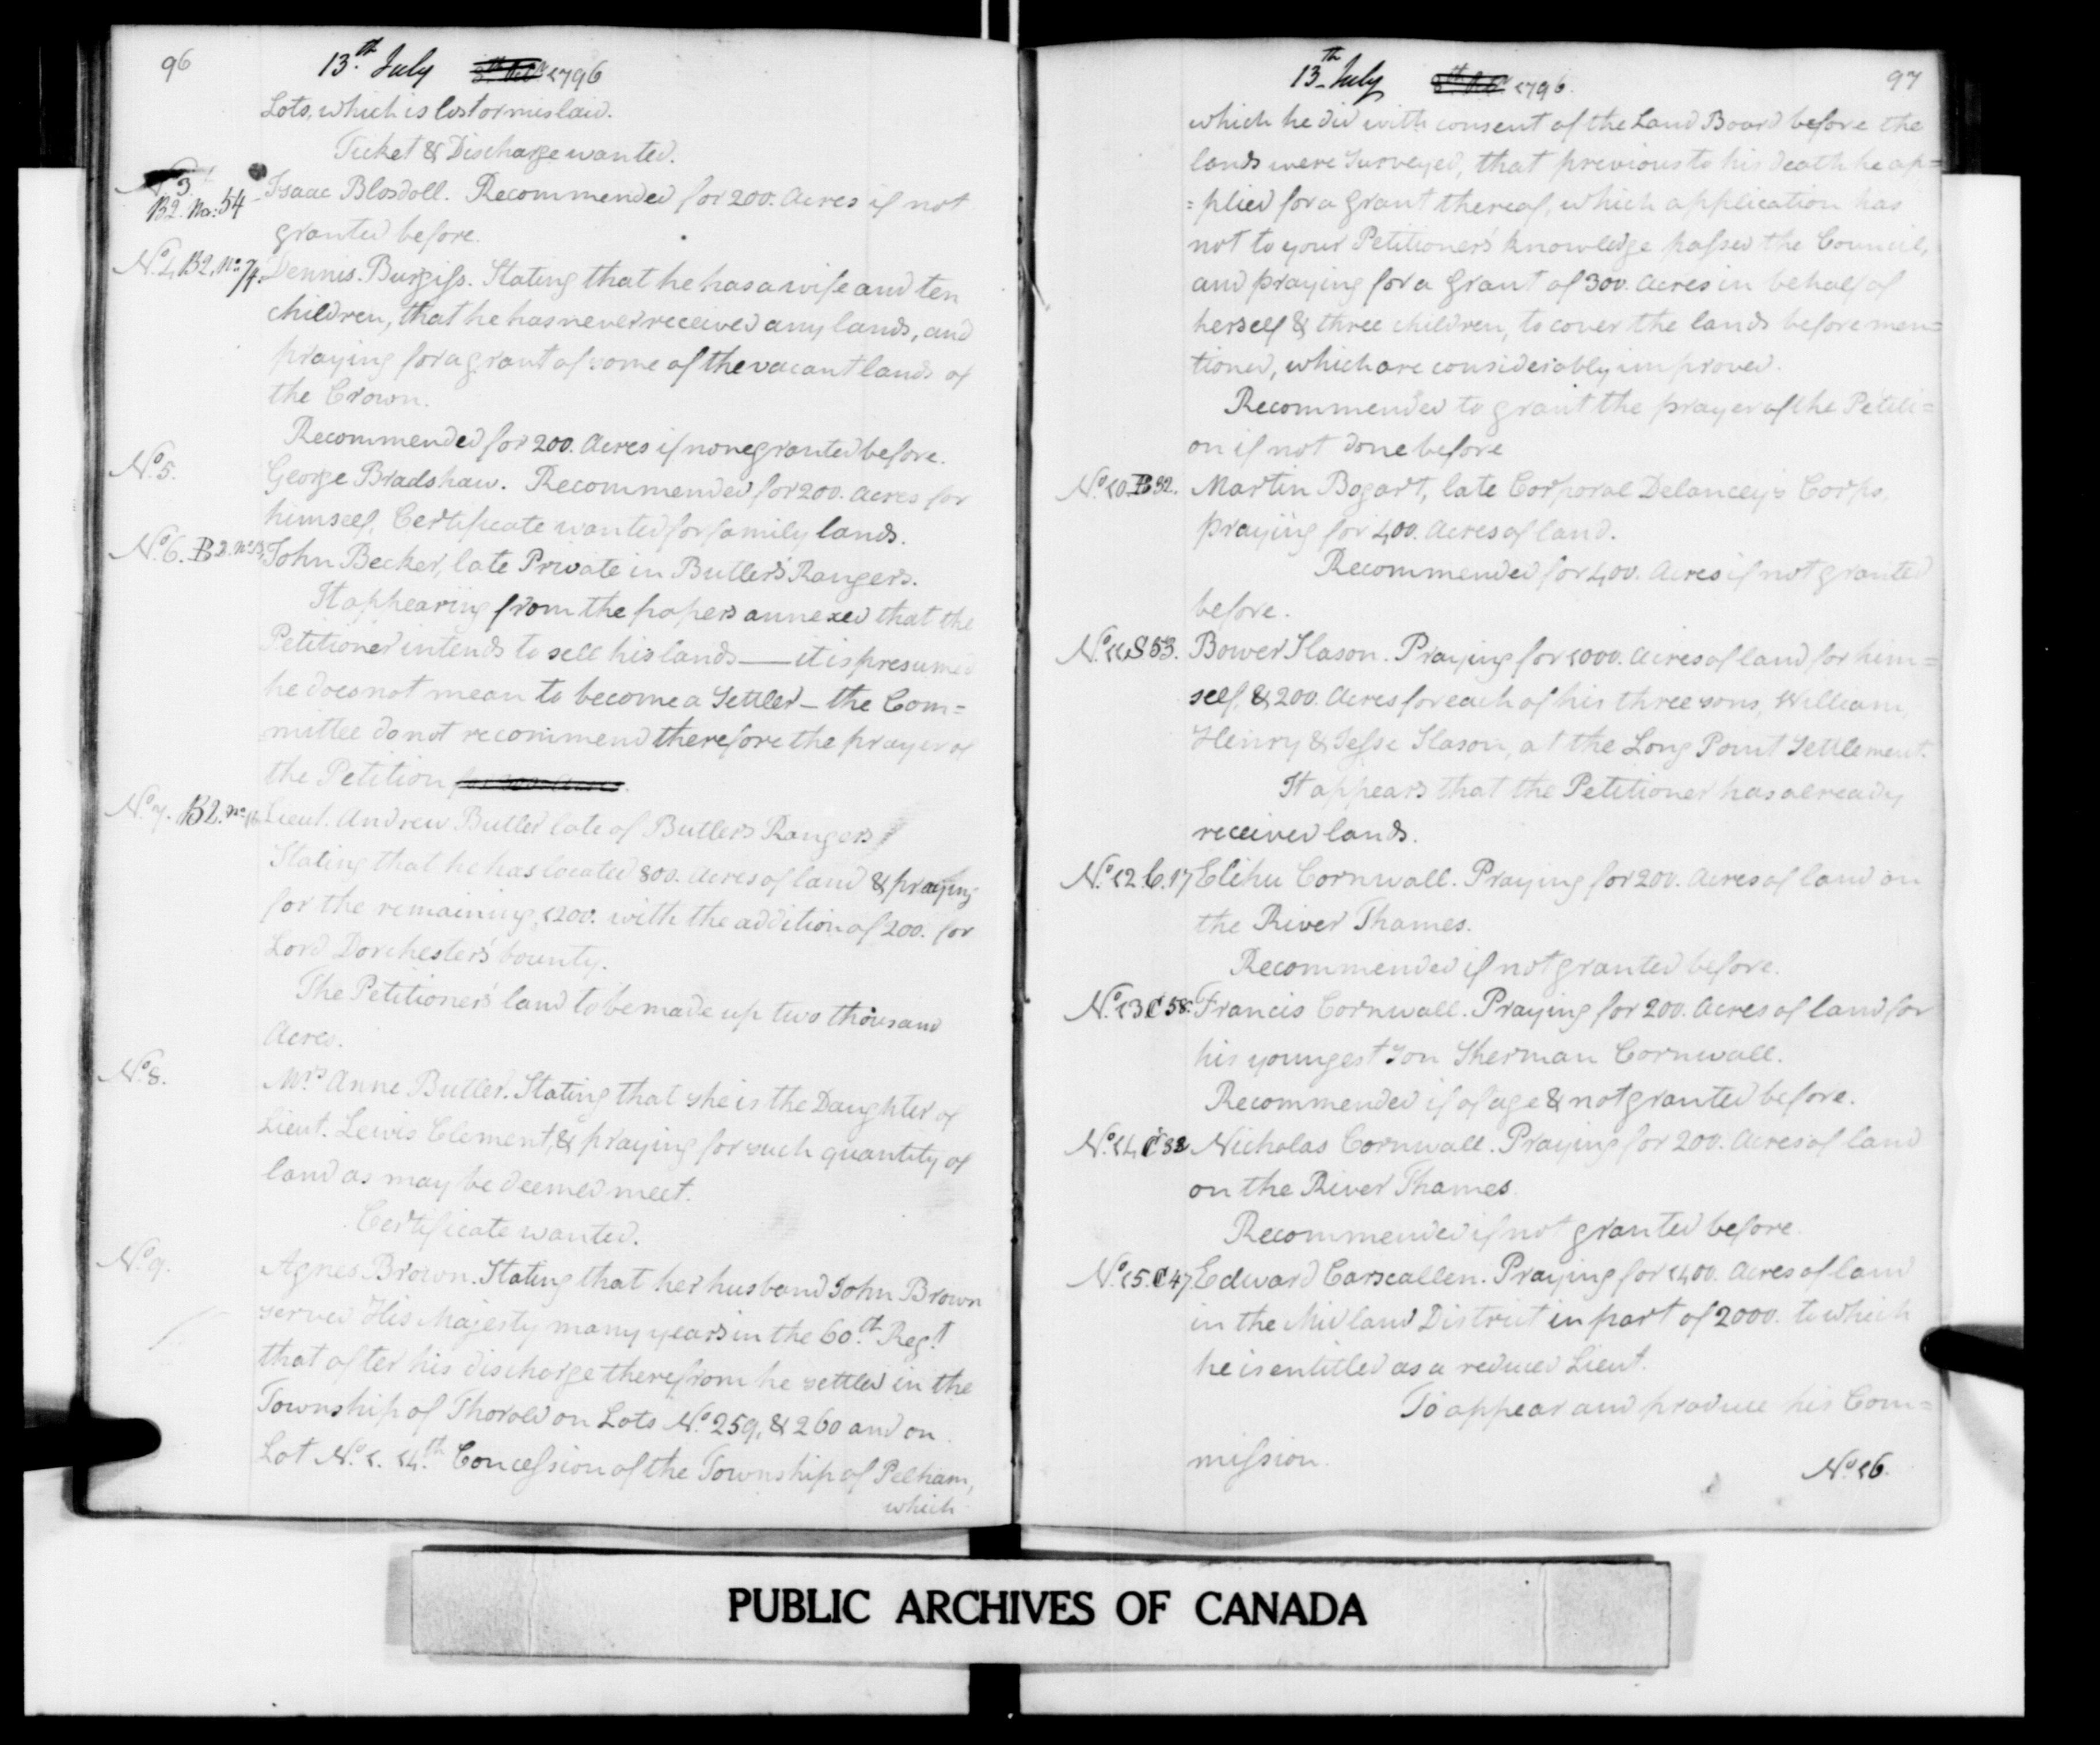 96
13th July 1796
Lots, which is lost or mislaid.
Ticket & Discharge wanted.
No. 3.
B2. No: 54
Isaac Blosdoll. Recommended for 200. Acres if not
granted before.
No. 4, B2, No. 74. Dennis. Burgiss. Stating that he has a wife and ten
children, that he has never received any lands, and
praying for a grant of some of the vacant lands of
the Crown.
Recommended for 200. Acres if none granted before.
No. 5. George Bradshaw. Recommended for 200. Acres for
himself, Certificate wanted for family lands.
No. 6. B 2. No. John Becker, late Private in Butlers Rangers.
It appearing from the papers annexed that the
Petitioner intends to sell his lands — it is presumed
he does not mean to become a Settler — the Com=
mittee do not recommend therefore the prayer of
the Petition
No. 7. B2. No. Lieut. Andrew Butler late of Butlers Rangers
Stating that he has located 800. Acres of land & praying
for the remaining 1200. with the addition of 200. for
Lord Dorchester's bounty.
The Petitioner's land to be made up two thousand
Acres.
No. 8. Mrs. Anne Butler. Stating that she is the Daughter of
Lieut. Lewis Clement, & praying for such quantity of
land as may be deemed meet.
Certificate wanted.
No. 9. Agnes Brown. Stating that her husband John Brown
served His Majesty many years in the 60th. Regt.
that after his discharge therefrom he settled in the
Township of Thorold on Lots No. 259, & 260 and on
Lot No. 1. 14th. Concession of the Township of Pelham,
which
13th July 1796.
97
which he did with consent of the Land Board before the
lands were Surveyed, that previous to his death he ap=
=plied for a grant thereof, which application has
not to your Petitioner's knowledge passed the Council,
and praying for a grant of 300. Acres in behalf of
herself & three children, to cover the lands before men=
tioned, which are considerably improved.
Recommended to grant the prayer of the Petiti=
on if not done before
No. 10 B 32. Martin Bogart, late Corporal Delancey's Corps,
praying for 400. Acres of land.
Recommended for 400. Acres if not granted
before.
No. 11 S 53. Bower Slason. Praying for 1000. Acres of land for him=
self, & 200. Acres for each of his three sons, William,
Henry & Jesse Slason, at the Long Point Settlement.
It appears that the Petitioner has already
received lands.
No. 12 C. 17 Elihu Cornwall. Praying for 200. Acres of land on
the River Thames.
Recommended if not granted before.
No. 13 C 58. Francis Cornwall. Praying for 200. Acres of land for
his youngest Son Sherman Cornwall.
Recommended if of age & not granted before.
No. 14 C 32 Nicholas Cornwall. Praying for 200. Acres of land
on the River Thames
Recommended if not granted before.
No. 15. C 47. Edward Carscallen. Praying for 1400. Acres of land
in the Midland District in part of 2000. to which
he is entitled as a reduced Lieut.
To appear and produce his Com=
mission.
No. 16.
PUBLIC ARCHIVES OF CANADA